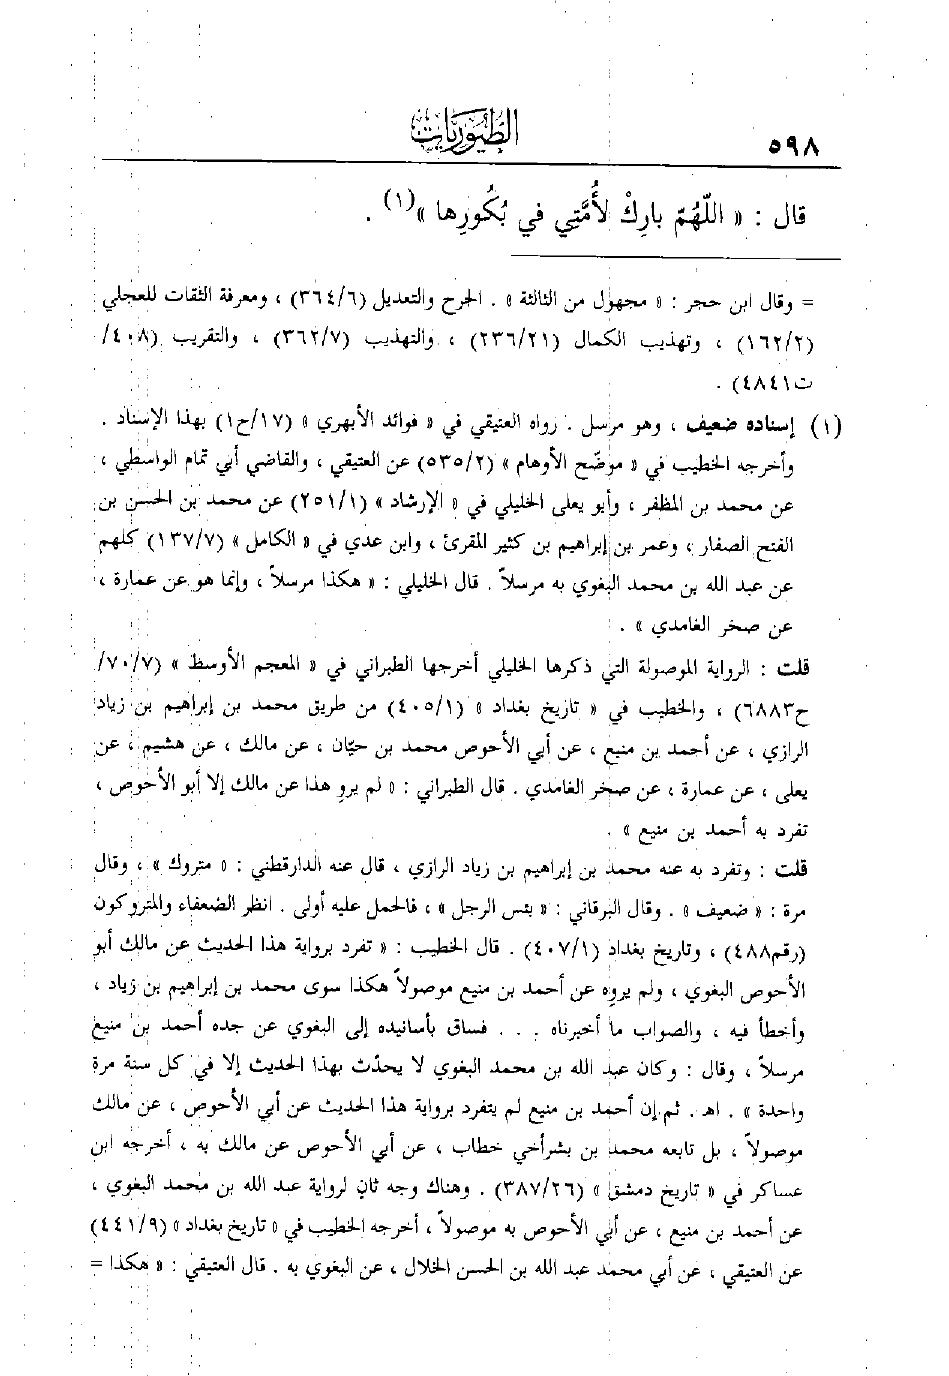 ٥٩٨
الطُّيُورِيَّات
قال : « اللّهُمّ بارِكْ لأُمَّتِي في بُكُورِها »(١) .
= وقال ابن حجر : « مجهول من الثالثة » . الجرح والتعديل (٣٦٤/٦) ، ومعرفة الثقات للعجلي
(١٦٢/٢) ، وتهذيب الكمال (٢٣٦/٢١) ، والتهذيب (٣٦٢/٧) ، والتقريب (٤٠٨/
ت٤٨٤١) .
(١) إسناده ضعيف ، وهو مرسل . رواه العتيقي في « فوائد الأبهري » (١٧/ح١) بهذا الإسناد .
وأخرجه الخطيب في « موضّح الأوهام » (٥٣٥/٢) عن العتيقي ، والقاضي أبي تمام الواسطي ،
عن محمد بن المظفر ، وأبو يعلى الخليلي في « الإرشاد » (٢٥١/١) عن محمد بن الحسن بن
الفتح الصفار ، وعمر بن إبراهيم بن كثير المقرئ ، وابن عدي في « الكامل » (١٣٧/٧) كلهم
عن عبد الله بن محمد البغوي به مرسلاً . قال الخليلي : « هكذا مرسلاً ، وإنما هو عن عمارة ،
عن صخر الغامدي » .
قلت : الرواية الموصولة التي ذكرها الخليلي أخرجها الطبراني في « المعجم الأوسط » (٧٠/٧/
ح٦٨٨٣) ، والخطيب في « تاريخ بغداد » (٤٠٥/١) من طريق محمد بن إبراهيم بن زياد
الرازي ، عن أحمد بن منيع ، عن أبي الأحوص محمد بن حيّان ، عن مالك ، عن هشيم ، عن
يعلى ، عن عمارة ، عن صخر الغامدي . قال الطبراني : « لم يرو هذا عن مالك إلا أبو الأحوص ،
تفرد به أحمد بن منيع » .
قلت : وتفرد به عنه محمد بن إبراهيم بن زياد الرازي ، قال عنه الدارقطني : « متروك » ، وقال
مرة : « ضعيف » . وقال البرقاني : « بئس الرجل » ، فالحمل عليه أولى . انظر الضعفاء والمتروكون
(رقم٤٨٨) ، وتاريخ بغداد (٤٠٧/١) . قال الخطيب : « تفرد برواية هذا الحديث عن مالك أبو
الأحوص البغوي ، ولم يروه عن أحمد بن منيع موصولاً هكذا سوى محمد بن إبراهيم بن زياد ،
وأخطأ فيه ، والصواب ما أخبرناه . . . فساق بأسانيده إلى البغوي عن جده أحمد بن منيع
مرسلاً ، وقال : وكان عبد الله بن محمد البغوي لا يحدّث بهذا الحديث إلا في كل سنة مرة
واحدة » . اهـ . ثم إن أحمد بن منيع لم يتفرد برواية هذا الحديث عن أبي الأحوص ، عن مالك
موصولاً ، بل تابعه محمد بن بشر أخي خطاب ، عن أبي الأحوص عن مالك به ، أخرجه ابن
عساكر في « تاريخ دمشق » (٣٨٧/٢٦) . وهناك وجه ثانٍ لرواية عبد الله بن محمد البغوي ،
عن أحمد بن منيع ، عن أبي الأحوص به موصولاً ، أخرجه الخطيب في « تاريخ بغداد » (٤٤١/٩)
عن العتيقي ، عن أبي محمد عبد الله بن الحسن الخلال ، عن البغوي به . قال العتيقي : « هكذا =